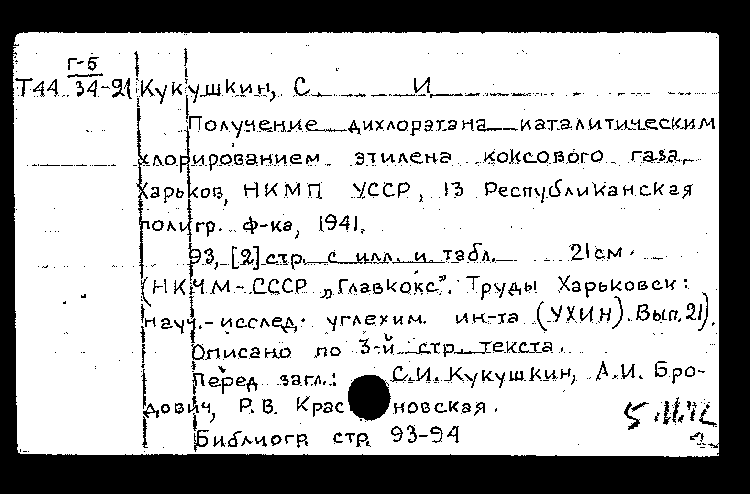 Г-5
Т44 34-21 Кукушкин, С. И.
Получение дихлорэтана каталитическим
хлорированием этилена коксового газа.
Харьков, НКМП УССР, 13 Республиканская
полигр. ф-ка, 1941.
93, [2] стр. с илл. и табл. 21 см.
(НКЧМ-СССР „Главкокс". Труды Харьковск:
науч.-исслед. углехим. ин-та (УХИН). Вып. 21).
Описано по 3-й стр. текста.
Перед загл.: С.И. Кукушкин, А.И. Бро-
дович, Р.В. Крас новская.
Библиогр. стр. 93-94